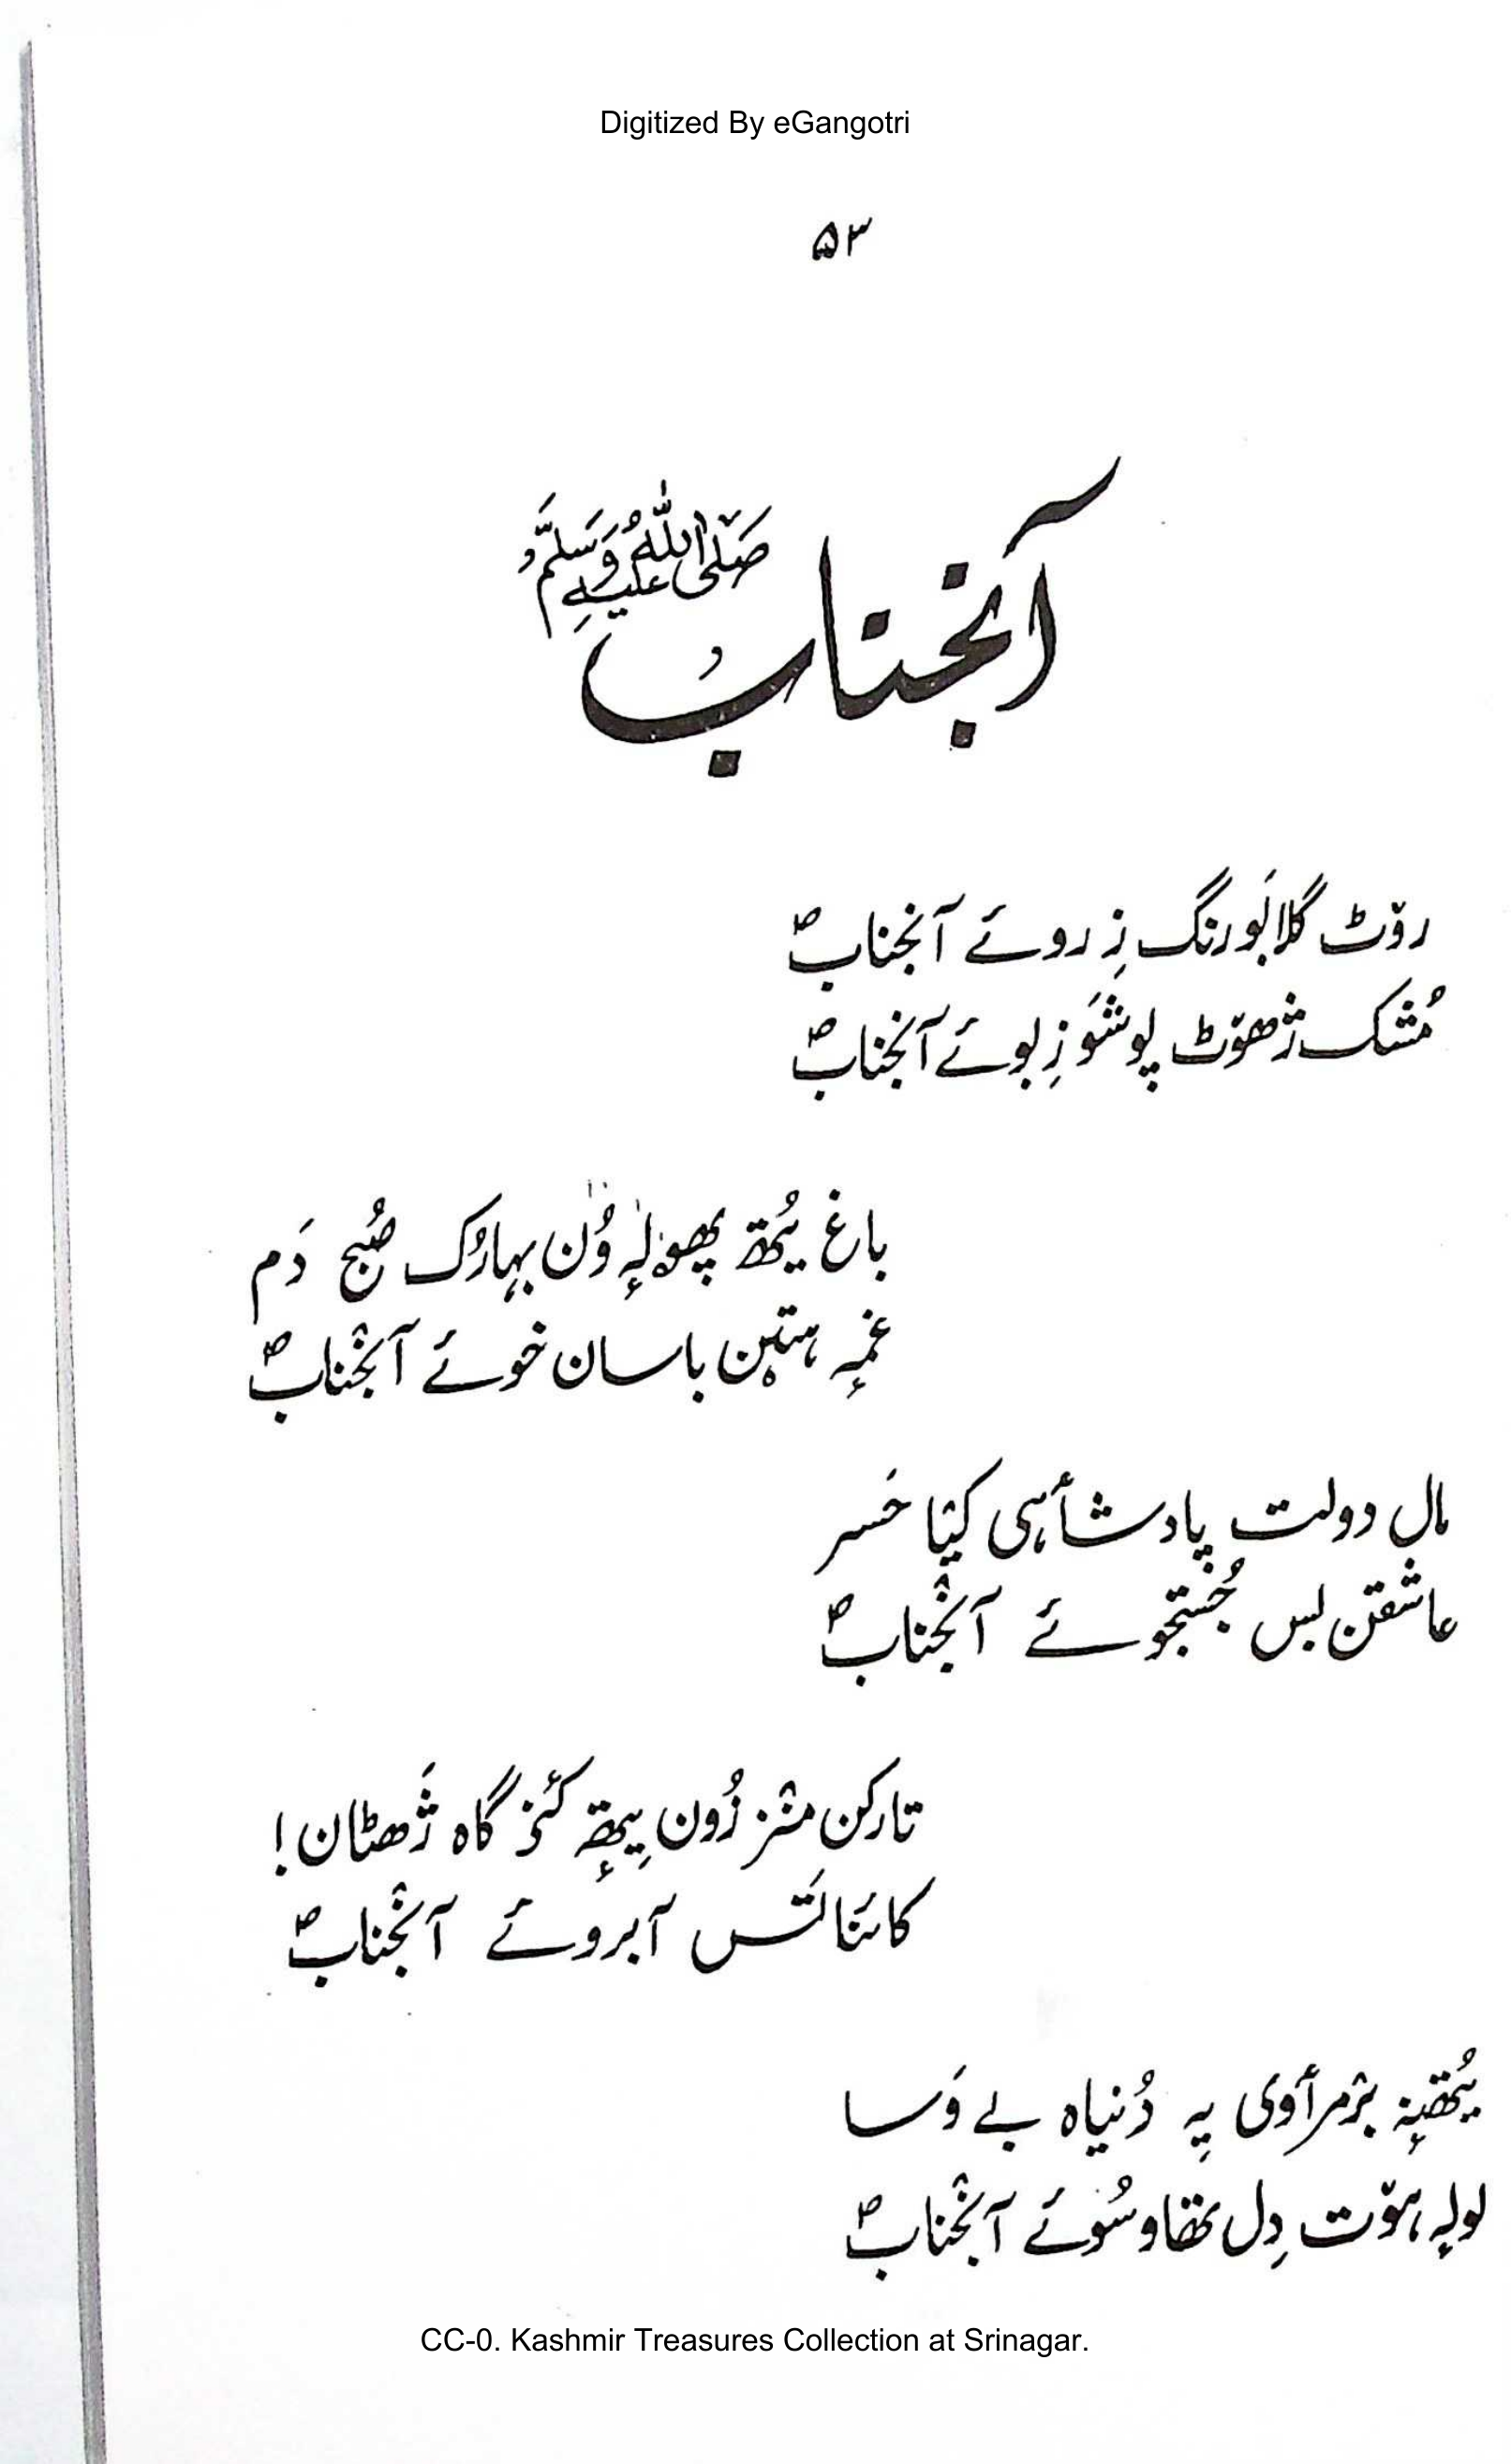 Digitized By eGangotri
۵۳
آنجناب صَلَّى اللهُ عَلَيْهِ وَسَلَّم
رۆٹ گلابَو رنگ زِ روئے آنجنابؐ
مُشک ژھۆٹ پوشَو زِ بوئے آنجنابؐ
باغ یُتھ پھۄلہٕ وُن بہارُک صُبح دَم
غمہٕ ہتٮ۪ن باسان خوئے آنجنابؐ
مال دولت پادشٲہی کیٛا خَسر
عاشقن بس جُستجوئے آنجنابؐ
تارکن منٛز زُون یِتھہٕ کٔنۍ گاہ ژَھٹان!
کائناتَس آبروئے آنجنابؐ
یُتھنہٕ برٛمرٲوی یہِ دُنیاہ بے وَسا
لولہٕ ہۆت دِل تھاو سُوئے آنجنابؐ
CC-0. Kashmir Treasures Collection at Srinagar.